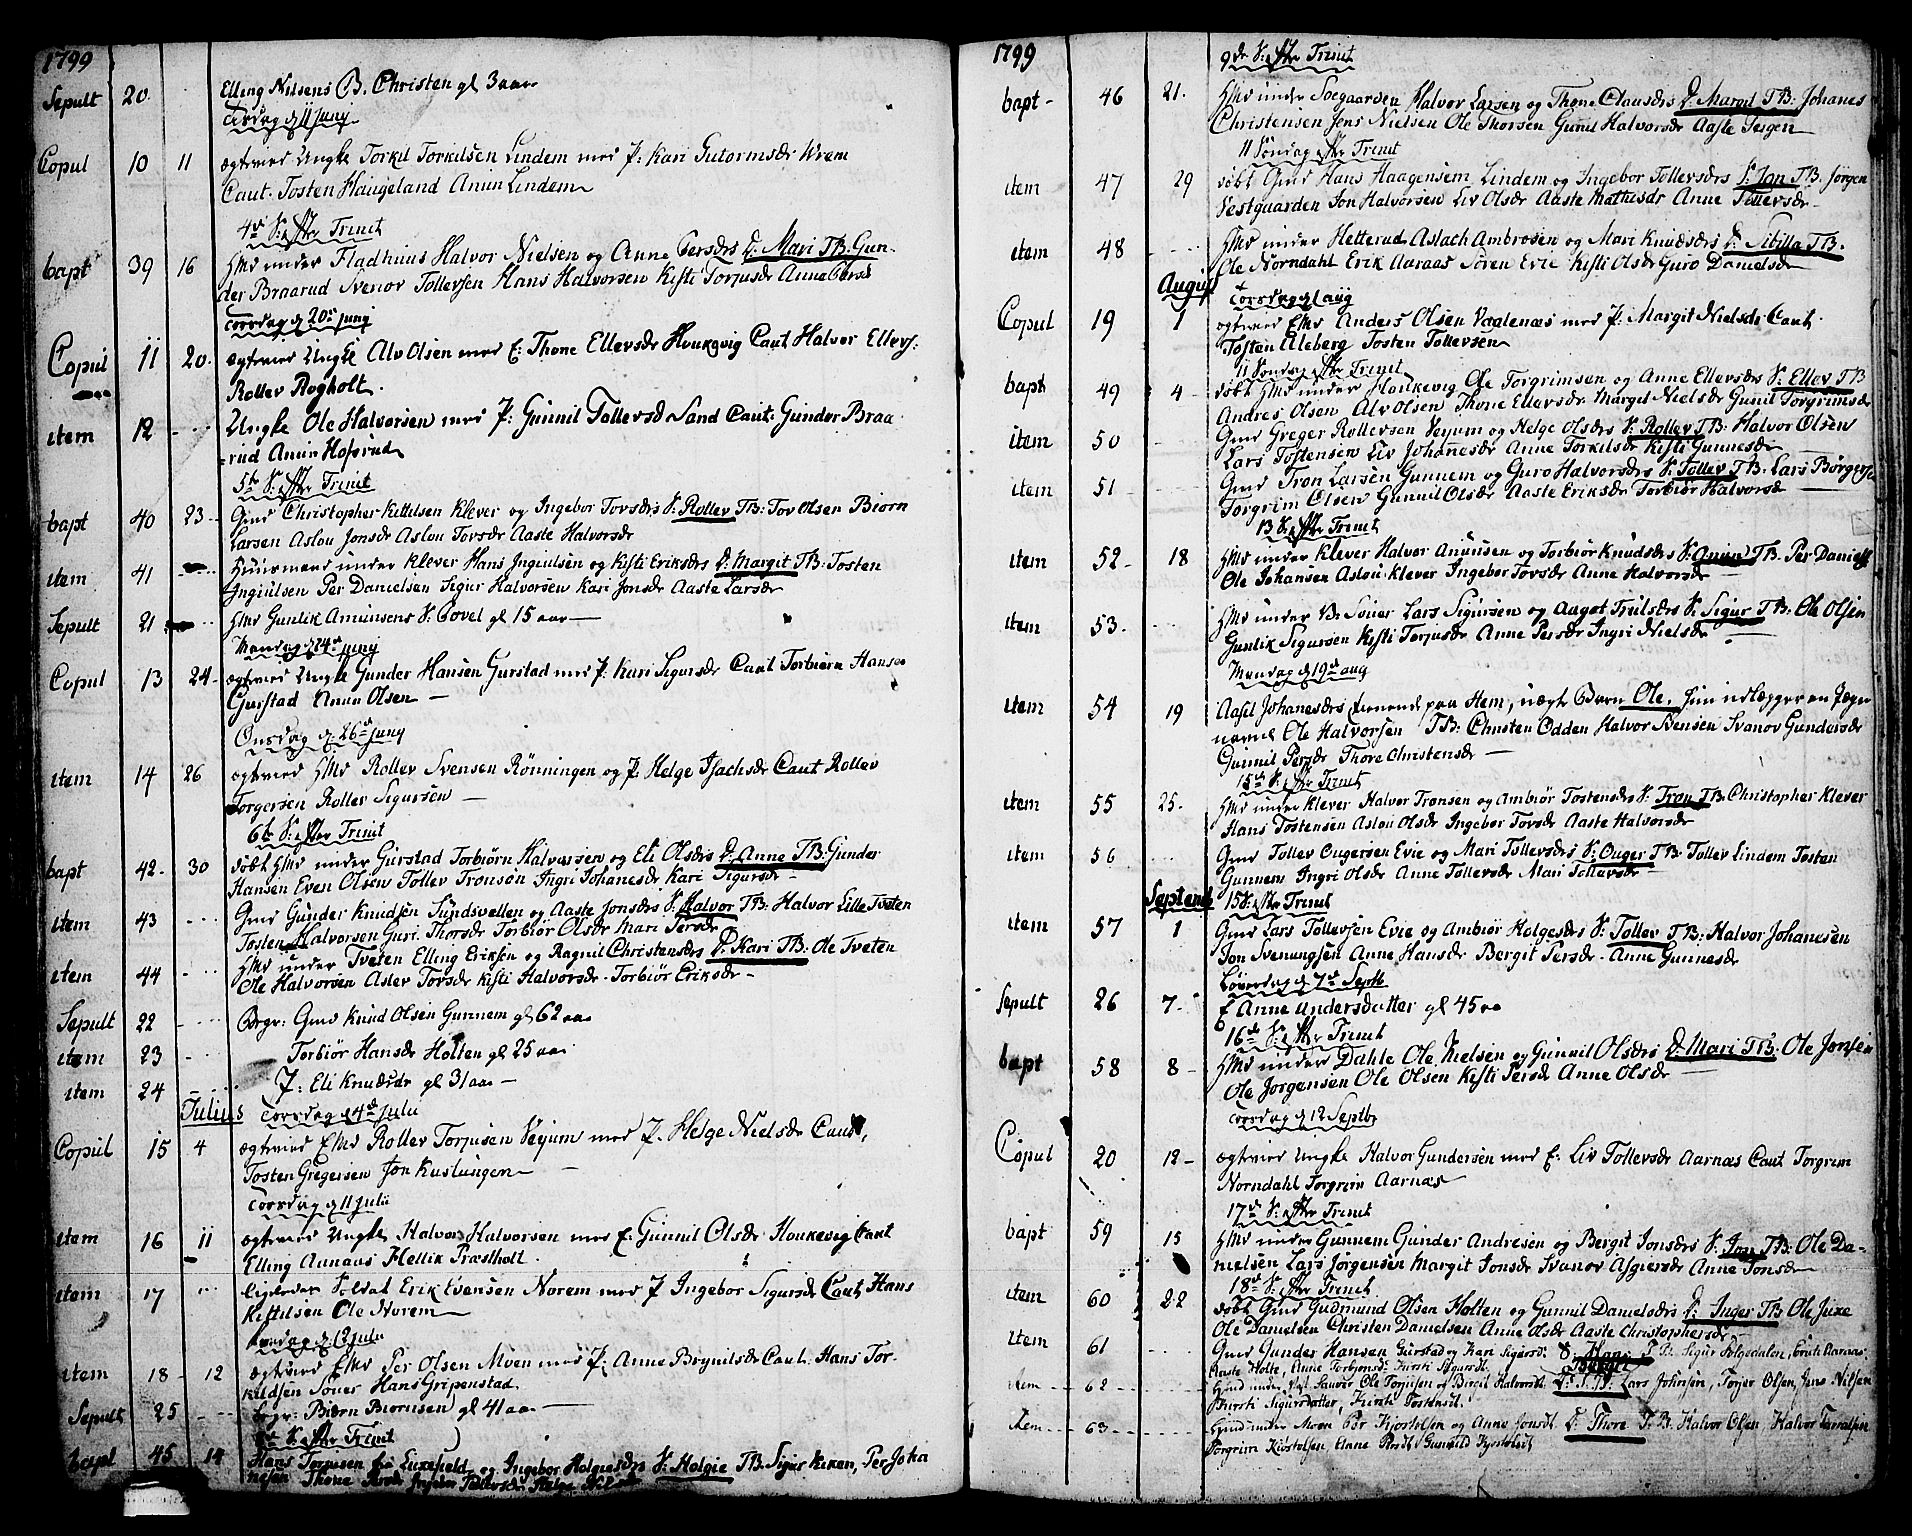 1799
Sepult 20. Elling Nilsens B. Christen gl 3 aar
Tirsdag d 11 juny
Copul 10 11 ægteviet Ungke Torkil Torkilsen Lindem med P: Kari Gutormsdr Wrem
Caut. Tosten Haugeland Anun Lindem
4de S: efter Trinit
bapt 39 16 HMd under Fladhuus Halvor Nielsen og Anne Persdrs D: Mari TB. Gun-
der Braarud Svenor Tollevsen Hans Halvorsen Kisti Torjusdr Anne Persd
Torsdag d 20de juny
Copul 11 20. ægteviet Ungke Alv Olsen med E: Thone Ellevsdr Houkevig Caut Halvor Ellevs:
Rollev Rogholt.
item 12 Ungke Ole Halvorsen med P: Gunnil Tollevsdr Sand Caut: Gunder Braa
rud Anun Hofsrud
5te S: efter Trinit
bapt 40 23 Gmd Christopher Kittilsen Klever og Ingebor Torsdrs S: Rollev TB: Tov Olsen Biorn
Larsen Aslou Jonsdr Aslou Torsdr Aaste Halvorsdr
item 41 Huusmand under Klever Hans Ingiulsen og Kisti Eriksdrs D: Margit TB: Tosten
Ingiulsen Per Danielsen Sigur Halvorsen Kari Jonsdr Aaste Larsdr
Sepult 21 HMd Gunlik Amunsens S: Povel gl 15 aar
Mandag d 24de juny
Copul 13 24 ægteviet Ungke Gunder Hansen Gurstad med P: Kari Sigursdr Caut Torbiørn Hansen
Gurstad Anun Olsen
Onsdag d: 26de juny
item 14 26 ægteviet HMd Rollev Svensen Rönningen og P: Helge Isachsdr Caut Rollev
Torgersen Rollev Sigursen
6te S: efter Trinit
bapt 42. 30 døbt HMd under Gurstad Torbiørn Halvorsen og Eli Olsdrs D: Anne TB: Gunder
Hansen Even Olsen Tollev Tronsøn Ingri Johanesdr Kari Sigursdr
item 43 Gmd Gunder Knudsen Sundsvallen og Aaste Jonsdrs S: Halvor TB: Halvor Lille Tveten
Tosten Halvorsen Guri Thorsdr Torbiör Olsdr Mari Persdr
item 44 HMd under Tveten Elling Eriksen og Ragnil Christensdrs D: Kari TB: Ole Tveten
Ole Halvorsen Aslev Torsdr Kisti Halvorsdr Torbiör Eriksdr
Sepult 22 Begr: Gmd Knud Olsen Gunnem gl 62 aar
item 23 Torbiör Hansdr Holten gl 25 aar
item 24 P: Eli Knudsdr gl 31 aar
Julius Torsdag d 4de julu
Copul 15 4 ægteviet EMd Rollev Torjusen Vejum med P. Helge Nielsdr Caut,
Tosten Gregersen Jon Kuslungen
Torsdag d 11 julii
item 16 11 ægteviet Ungke Halvor Halvorsen med E. Gunnil Olsdr Houkevig Caut
Elling Aanaas Hellik Præstholt.
item 17 ligeledes Soldat Erik Evensen Norem med P Ingebor Sigursdr Caut Hans
Kittilsen Ole Norem
Fredag d 12 julii
item 18 12 ægteviet EMd Per Olsen Moen med P: Anne Brynilsdr Caut: Hans Tor-
kildsen Soner Hans Gripenstad.
Sepult 25 Begr: Biørn Biornsen gl 41 aar
8de S. efter Trinit
bapt 45 14 Hans Torjusen fra Luxefield og Ingebor Holgesdrs S: Holgie TB: Sigur Kiken, Per Joha
nesen Thone
1799
9de S: efter Trinit
bapt 46 21. HMd under Soegaarden Halvor Larsen og Thone Clausdrs D: Margit TB: Johanes
Christensen Jens Nielsen Ole Thorsen Gunil Halvorsdr Aaste Teigen
11 Søndag efter Trinit
item 47 29 døbt Gmd Hans Haagensen Lindem og Ingebor Tollevsdrs S: Jon TB. Jörgen
Vestguarden Jon Halvorsen Liv Olsdr Aaste Mathisdr Anne Tollevsdr
item 48 HMd under Hetterud Aslach Ambrosen og Mari Knudsdrs D: Sibilla TB.
Ole Norndahl Erik Aaraas Søren Evie Kisti Olsdr Guro Danielsdr
August Torsdag d 1 aug
Copul 19 1 ægteviet EMd Anders Olsen Vaalenæs med P: Margit Nielsdr Caut
Tosten Aleberg Tosten Tollevsen
11 Søndag efter Trinit
bapt 49 4 døbt HMd under Houkevig Ole Torgrimsen og Anne Ellevsdrs S: Ellev TB
Andres Olsen Alv Olsen Thone Ellevsdr Margit Nielsdr Gunil Torgrimsdr
item 50 Gmd Greger Rollevsen Vejum og Helge Olsdrs S: Rollev TB: Halvor Olsen
Lars Tostensen Liv Johanesdr Anne Torkilsdr Kisti Gunnesdr
item 51 Gmd Tron Larsen Gunnem og Guro Halvorsdrs S: Tollev TB: Lars Börgersen
Torgrim Olsen Gunnil Olsdr Aaste Eriksdr Torbiör Halvorsd
13 S: efter Trinit
item 52 18 HMd under Klever Halvor Anunsen og Torbiör Knudsdrs S: Anun TB. Per Daniels
Ole Johansen Aslou Klever Ingebor Torsdr Anne Halvorsdr
item 53 HMd under B. Soner Lars Sigursen og Aagot Trulsdrs S: Sigur TB: Ole Olsen
Gunlik Sigursen Kisti Torjusdr Anne Persdr Ingri Nielsdr
Mandag d 19de aug
item 54 19 Aasil Johanesdrs tienende paa Hem, uægte Barn Ole, hun udlægger en Pige
navnl Ole Halvorsen TB: Christen Odden Halvor Bensen Svanov Gundersdr
Gunnil Persdr Thore Christensdr
15de S: efter Trinit
item 55 25. HMd under Klever Halvor Tronsen og Ambiör Tostensdrs S: Tron TB. Christopher Klever
Hans Tostensen Aslou Olsdr Ingebor Torsdr Aaste Halvorsdr
item 56 Gmd Tollev Ougersen Evie og Mari Tollevsdrs S: Ouger TB Tollev Lindem Tosten
Gunnem Ingri Olsdr Anne Tollevsdr Mari Tollevsdr
Septemb 15 S. efter Trinit
item 57 1 Gmd Lars Tollevsen Evie og Ambiör Holgesdrs S: Tollev TB: Halvor Johanesen
Jon Svenungsen Anne Hansdr Bergit Persdr Anne Gunnesdr
Løverdag d 7de Septb
Sepult 26 7 E Anne Andersdatter gl 45 aar
16de S: efter Trinit
bapt 58 8 HMd under Dahle Ole Nielsen og Gunnil Olsdrs D: Mari TB: Ole Jonsen
Ole Jorgensen Ole Olsen Kisti Persdr Anne Olsdr
Torsdag d 12 Septb
Copul 20 12 ægteviet Ungke Halvor Gundersen med E: Liv Tollevsdr Aarnæs Caut Torgrim
Norndahl Torgrim Aarnæs
17de S: efter Trinit
bapt 59 15 HMd under Gunnem Gunder Andresen og Bergit Jonsdrs S: Jon TB: Ole Da-
nielsen Lars Jörgensen Margit Jonsdr Svanov Asgiersdr Anne Jonsdr
18de S. efter Trinit
item 60 22 døbt Gmd Gudmund Olsen Holten og Gunnil Danielsdrs D: Inger TB Ole Juxe
Ole Danielsen Christen Danielsen Anne Olsdr Aaste Christophersdr
item 61 Gmd Gunder Hansen Gurstad og Kari Sigursd: S. Hans T.B. Sigur Folgedalen, Erik Aaraas
Aaste Holte, Anne Torbjonsdr Kirsti Sigursdt.
item 62 Hmd under Vest Sauver Ole Torjusen og Birgit Halvorsdt. D: Birgit T.B: Lars Johnsen, Torjer Olsen, Jens Nilsen
Kirsti Sigursdatter, Kirsti Tostensdt.
item 63 Hmd under Moen Per Kjostolsen og Anne Jonsdt. D. Thore T.B. Halvor Olsen Halvor Torvalsen
Torgrim Kiostolsen, Anne Persdt. Gunnild Kjostolsdt